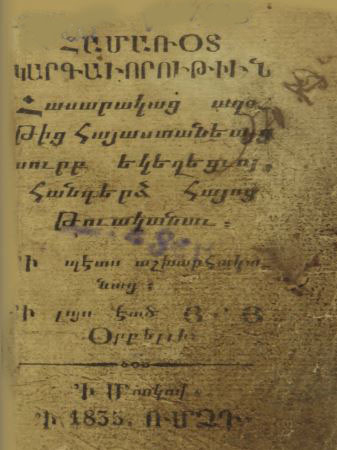 ՀԱՄԱՌՕՏ
ԿԱՐԳԱՒՈՐՈՒԹԻՒՆ
Հասարակաց աղօ-
Թից Հայաստանեայց
սուրբ եկեղեցւոյ,
Հանդերձ Հայոց
Թուականաւ։
Ի պէտս աշխարհակա
նաց։
Ի լոյս էած
Օրբելի
Ի Մոսկով։
Ի 1835. ՌՄՁԴ.